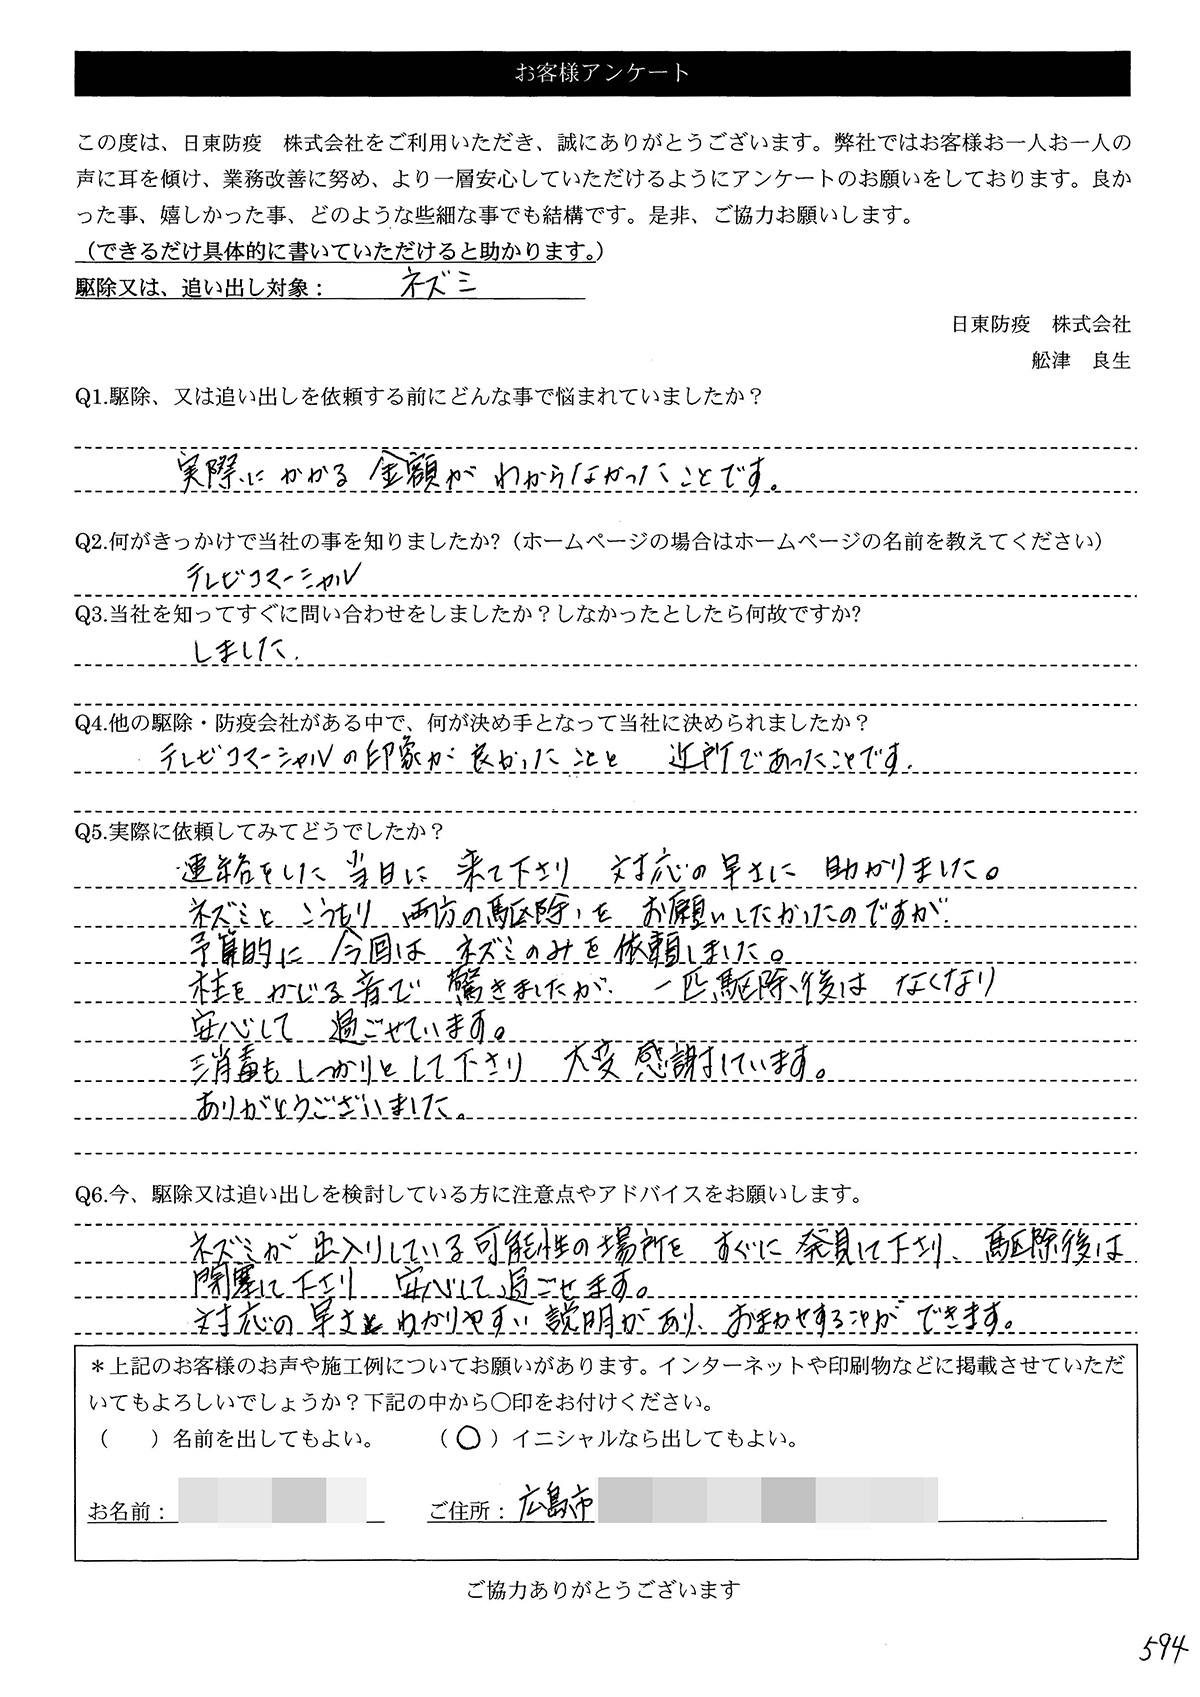 お客様アンケート
この度は、日東防疫　株式会社をご利用いただき、誠にありがとうございます。弊社ではお客様お一人お一人の
声に耳を傾け、業務改善に努め、より一層安心していただけるようにアンケートのお願いをしております。良か
った事、嬉しかった事、どのような些細な事でも結構です。是非、ご協力お願いします。
（できるだけ具体的に書いていただけると助かります。）
駆除又は、追い出し対象：　ネズミ
日東防疫　株式会社
舩津　良生
Q1.駆除、又は追い出しを依頼する前にどんな事で悩まれていましたか？
実際にかかる金額がわからなかったことです。
Q2.何がきっかけで当社の事を知りましたか?（ホームページの場合はホームページの名前を教えてください）
テレビコマーシャル
Q3.当社を知ってすぐに問い合わせをしましたか？しなかったとしたら何故ですか?
しました.
Q4.他の駆除・防疫会社がある中で、何が決め手となって当社に決められましたか？
テレビコマーシャルの印象が良かったことと　近所であったことです.
Q5.実際に依頼してみてどうでしたか？
連絡をした当日に来て下さり　対応の早さに助かりました。
ネズミとこうもり両方の駆除をお願いしたかったのですが、
予算的に今回はネズミのみを依頼しました。
柱をかじる音で驚きましたが、一匹駆除後はなくなり
安心して過ごせています。
消毒もしっかりとして下さり　大変感謝しています。
ありがとうございました。
Q6.今、駆除又は追い出しを検討している方に注意点やアドバイスをお願いします。
ネズミが出入りしている可能性の場所をすぐに発見して下さり、駆除後は
閉塞して下さり　安心して過ごせます。
対応の早さとわかりやすい説明があり、おまかせすることができます。
＊上記のお客様のお声や施工例についてお願いがあります。インターネットや印刷物などに掲載させていただ
いてもよろしいでしょうか？下記の中から〇印をお付けください。
（　　）名前を出してもよい。　（〇）イニシャルなら出してもよい。
お名前：　ご住所：広島市
ご協力ありがとうございます
594